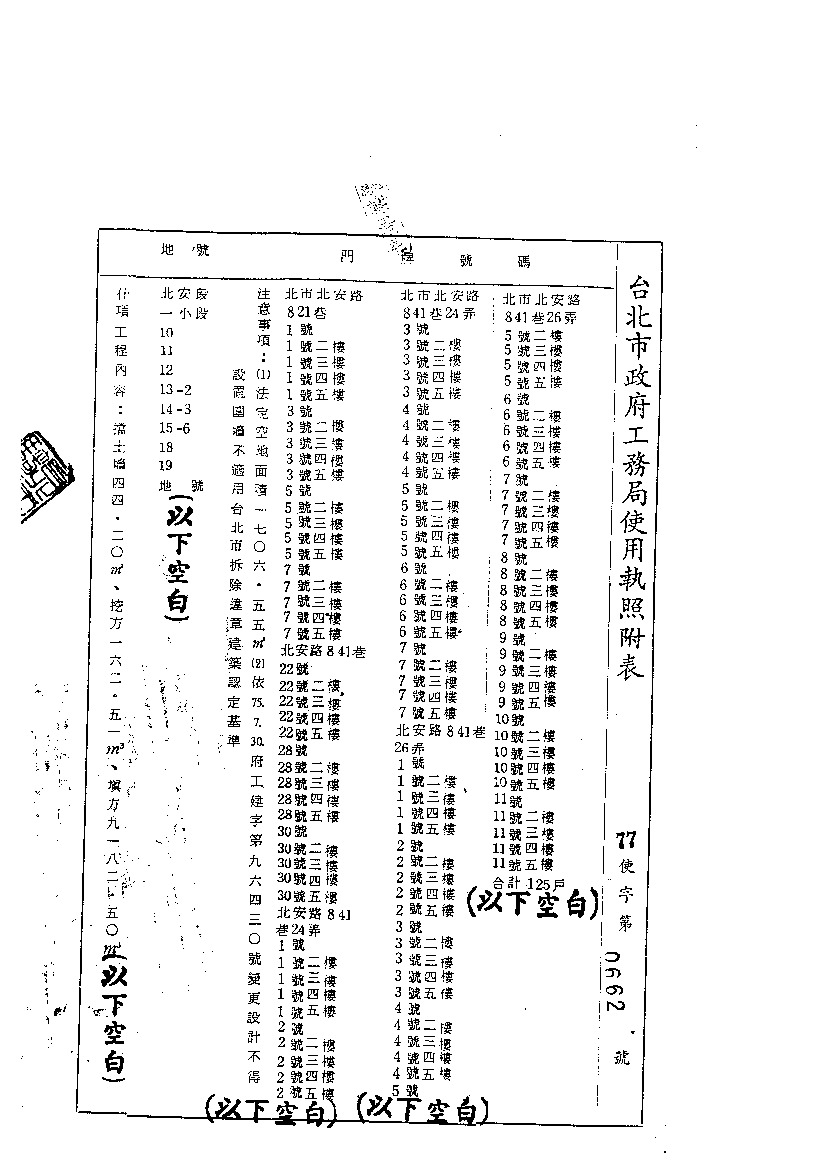 台北市政府工務局使用執照附表
77使字第0662號
門牌號碼
地號
北市北安路
841巷26弄
5號二樓
5號三樓
5號四樓
5號五樓
6號
6號二樓
6號三樓
6號四樓
6號五樓
7號
7號二樓
7號三樓
7號四樓
7號五樓
8號
8號二樓
8號三樓
8號四樓
8號五樓
9號
9號二樓
9號三樓
9號四樓
9號五樓
10號
10號二樓
10號三樓
10號四樓
10號五樓
11號
11號二樓
11號三樓
11號四樓
11號五樓
合計125戶
(以下空白)
北市北安路
841巷24弄
3號
3號二樓
3號三樓
3號四樓
3號五樓
4號
4號二樓
4號三樓
4號四樓
4號五樓
5號
5號二樓
5號三樓
5號四樓
5號五樓
6號
6號二樓
6號三樓
6號四樓
6號五樓
7號
7號二樓
7號三樓
7號四樓
7號五樓
北安路841巷
26弄
1號
1號二樓
1號三樓
1號四樓
1號五樓
2號
2號二樓
2號三樓
2號四樓
2號五樓
3號
3號二樓
3號三樓
3號四樓
3號五樓
4號
4號二樓
4號三樓
4號四樓
4號五樓
5號
(以下空白)
北市北安路
821巷
1號
1號二樓
1號三樓
1號四樓
1號五樓
3號
3號二樓
3號三樓
3號四樓
3號五樓
5號
5號二樓
5號三樓
5號四樓
5號五樓
7號
7號二樓
7號三樓
7號四樓
7號五樓
北安路841巷
22號
22號二樓
22號三樓
22號四樓
22號五樓
28號
28號二樓
28號三樓
28號四樓
28號五樓
30號
30號二樓
30號三樓
30號四樓
30號五樓
北安路841
巷24弄
1號
1號二樓
1號三樓
1號四樓
1號五樓
2號
2號二樓
2號三樓
2號四樓
2號五樓
(以下空白)
注意事項：(1)法定空地面積一七〇六·五五㎡(2)依75.7.30.府工建字第九六四三〇號變更設計不得
設置圍牆不適用台北市拆除違章建築認定基準
北安段
一小段
10
11
12
13-2
14-3
15-6
18
19
地號
(以下空白)
什項工程內容：擋土牆四四·二〇㎡、挖方一六二·五一m³、填方九一八二·五〇m³
(以下空白)